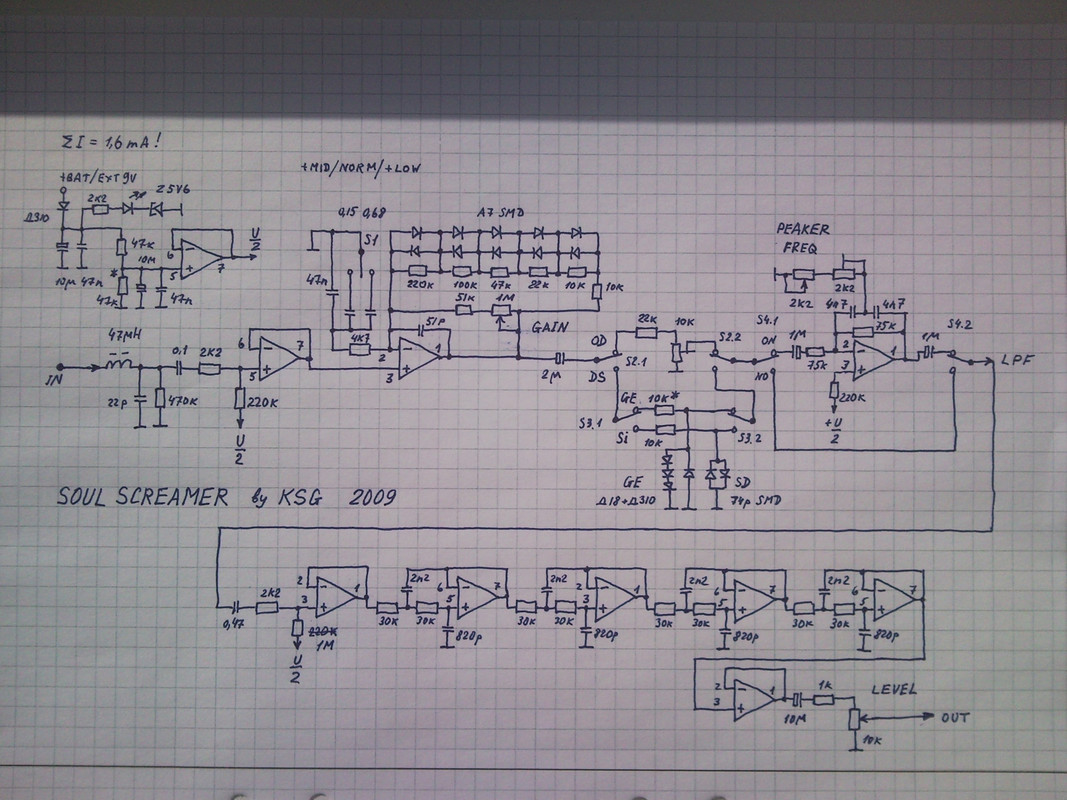 ΣI = 1,6 mA!
+BAT/EXT 9V
2K2
Z5V6
Д310
47K
10M
*
10µ
47n
47K
47n
6
5
7
U/2
+MID/NORM/+LOW
0,15
0,68
S1
47n
4K7
A7 SMD
220K
100K
47K
22K
10K
10K
51K
1M
GAIN
51p
2
3
1
47MH
IN
22p
470K
0,1
2K2
6
5
7
220K
U/2
2M
OD
DS
S2.1
22K
10K
S2.2
S3.1
GE
10K*
Si
10K
S3.2
GE
Д18+Д310
SD
74p SMD
S4.1
ON
NO
PEAKER
FREQ
2K2
2K2
4n7
4n7
75K
1M
75K
2
3
1
220K
+U/2
1M
S4.2
LPF
SOUL SCREAMER by KSG 2009
0,47
2K2
2
3
1
220K
1M
U/2
30K
2n2
30K
6
5
7
820p
30K
2n2
30K
2
3
1
820p
30K
2n2
30K
6
5
7
820p
30K
2n2
30K
6
5
7
820p
2
3
1
10M
1K
LEVEL
10K
OUT